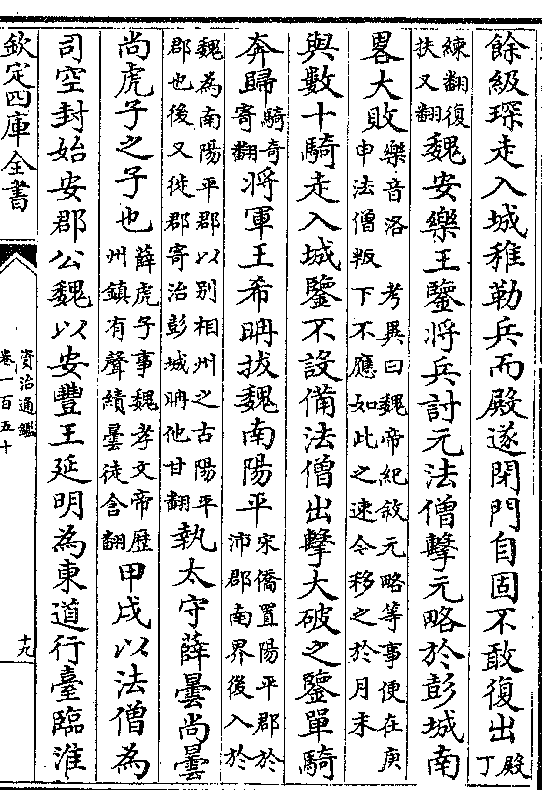 餘級琛走入城稚勒兵而殿遂閉門自固不敢復出殿丁
練翻復扶又翻魏安樂王鑒將兵討元法僧擊元略於彭城南
畧大敗樂音洛 考異曰魏帝紀敘元略等事便在庚申法僧叛下不應如此之速今移之於月末
與數十騎走入城鑒不設備法僧出擊大破之鑒單騎
奔歸騎奇寄翻將軍王希聃拔魏南陽平宋僑置陽平郡於沛郡南界後入於
魏為南陽平郡以别相州之古陽平郡也後又徙郡寄治彭城聃他甘翻執太守薛曇尚曇
尚虎子之子也薛虎子事魏孝文帝歴州鎮有聲績曇徒含翻甲戌以法僧為
司空封始安郡公魏以安豐王延明為東道行臺臨淮
欽定四庫全書
資治通鑑
卷一百五十
十九